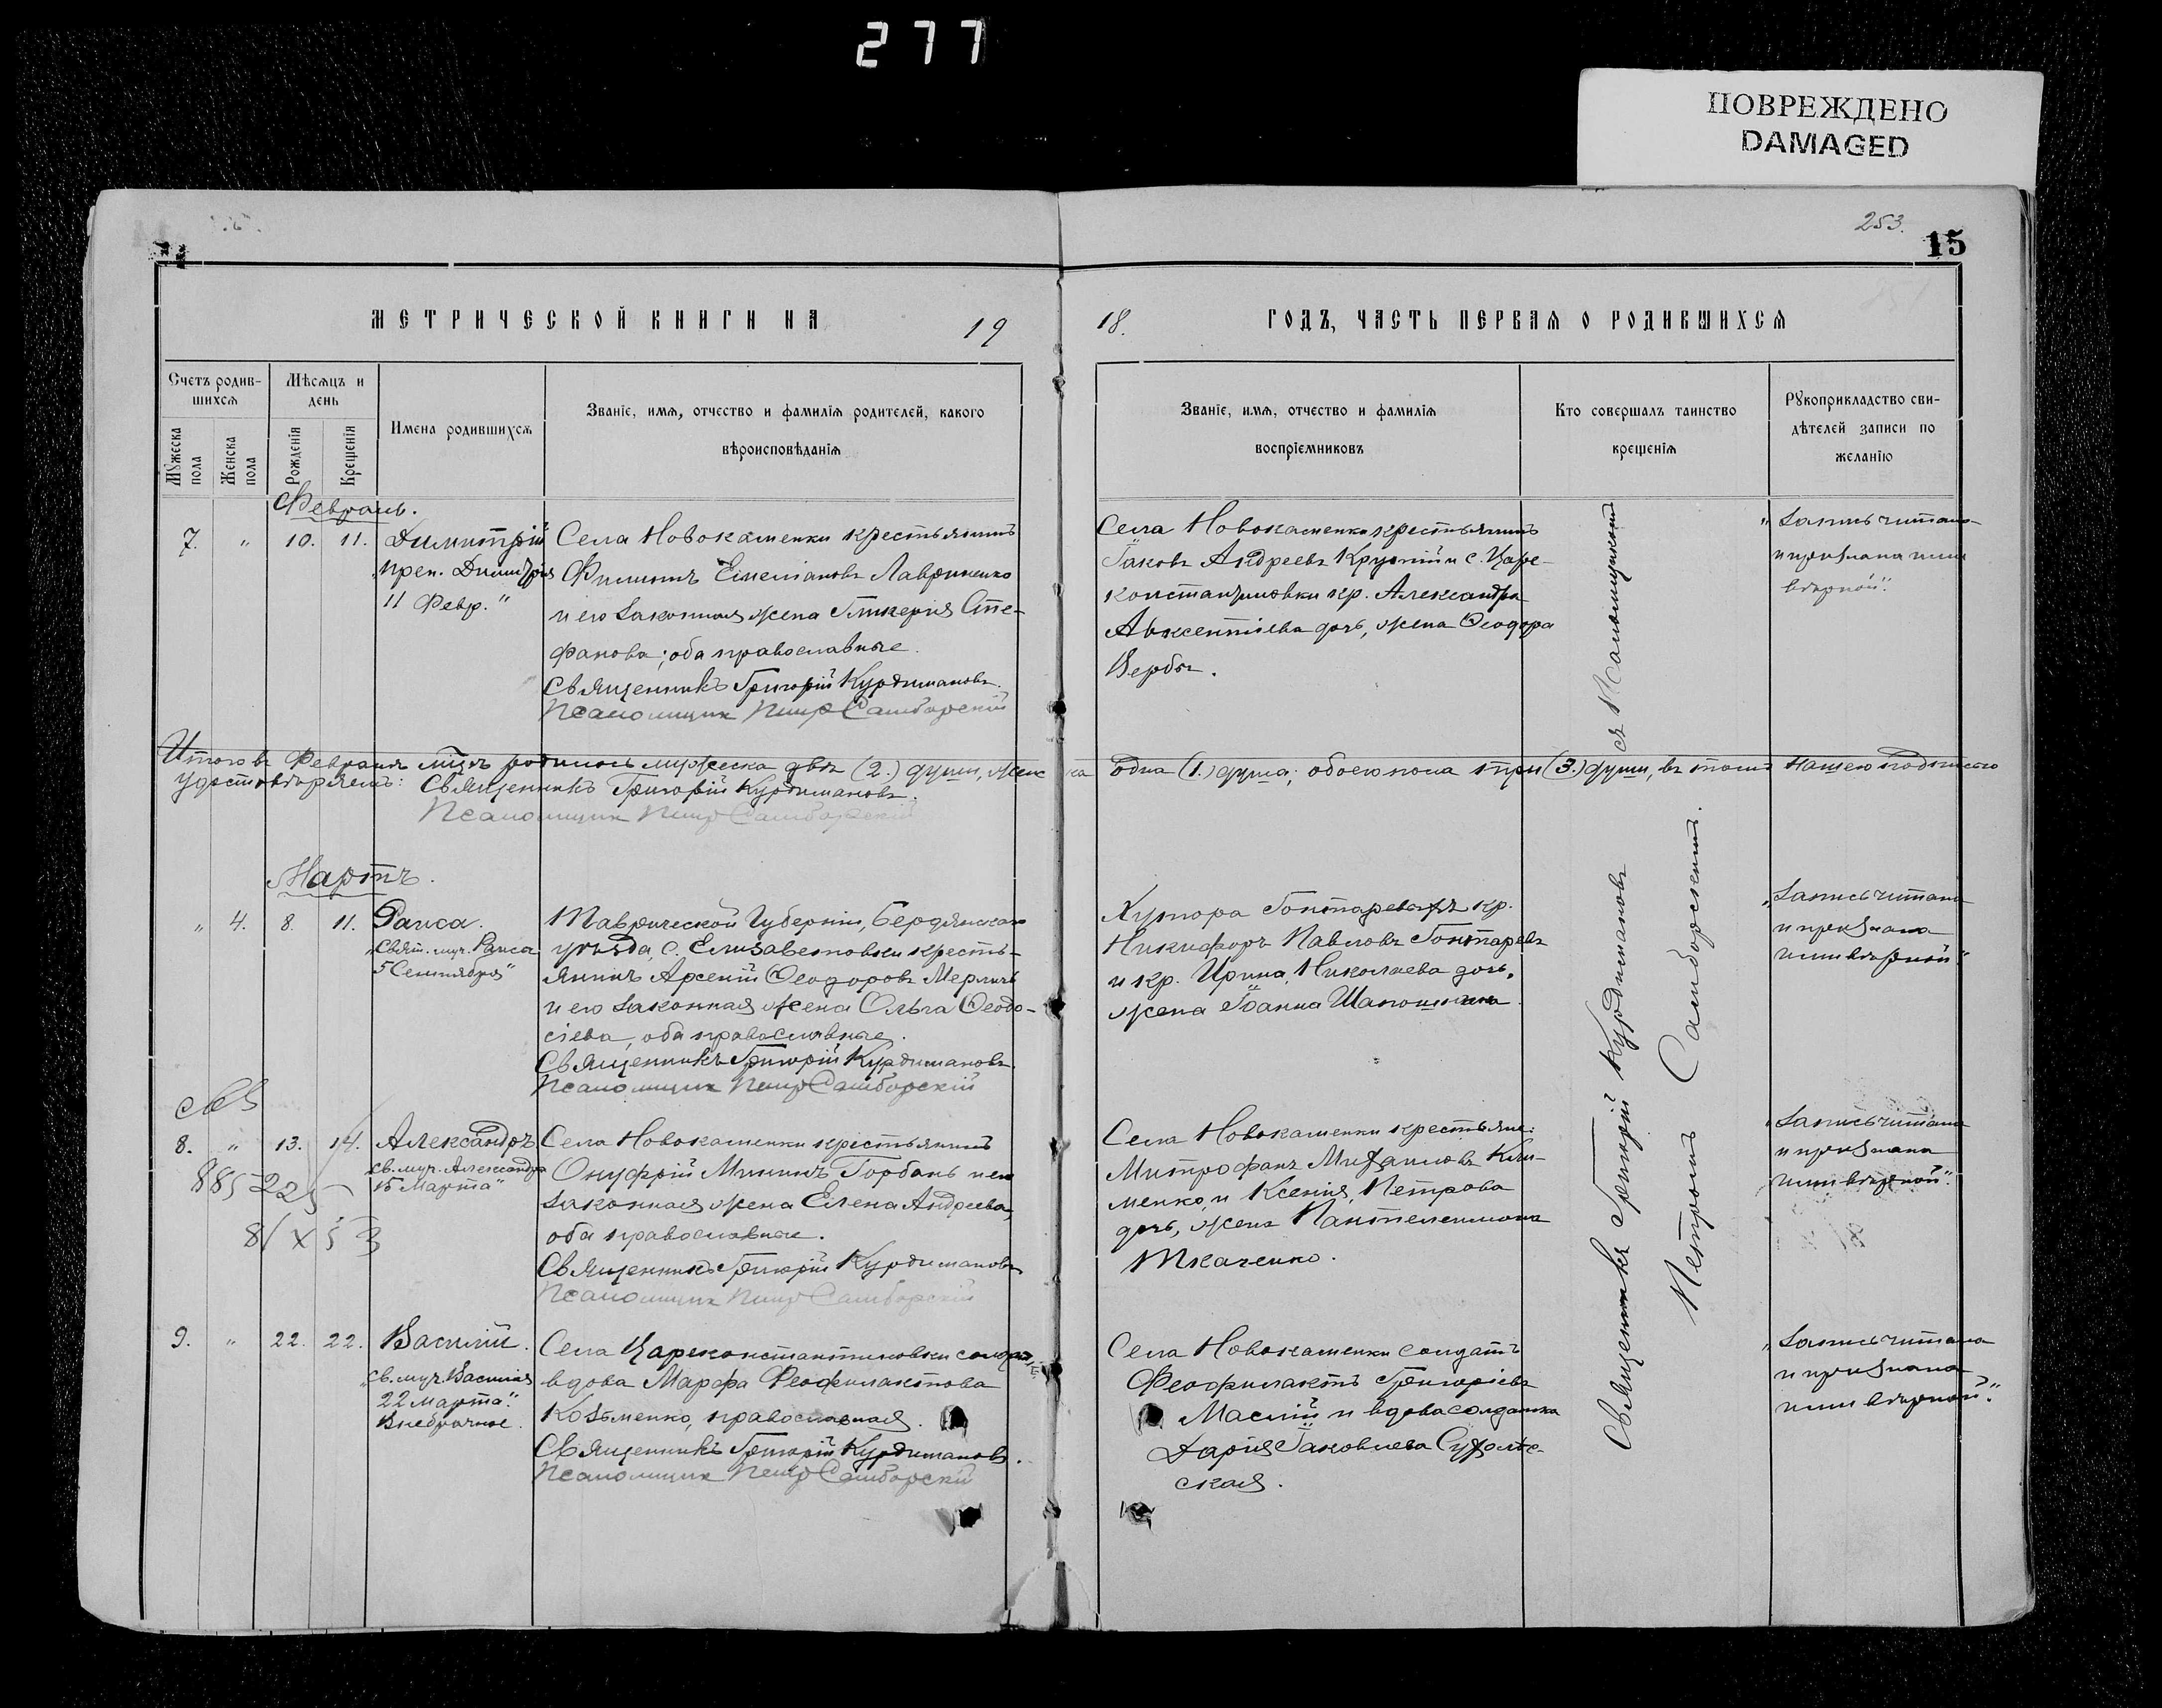 277
ПОВРЕЖДЕНО
DAMAGED
253.
15
МЕТРИЧЕСКОЙ КНИГИ НА 19
18. ГОДЪ, ЧАСТЬ ПЕРВАЯ О РОДИВШИХСЯ
Счетъ родив-
шихся
Мужеска пола
Женска пола
Мѣсяцъ и
день
Рожденія
Крещенія
Имена родившихся
Званіе, имя, отчество и фамилія родителей, какого
вѣроисповѣданія
Званіе, имя, отчество и фамилія
воспріемниковъ
Кто совершалъ таинство
крещенія
Рукоприкладство сви-
дѣтелей записи по
желанію
Февраль.
7. " 10. 11.
Димитрій
"преп. Димитрія
11 Февр."
Села Новокаменки крестьянинъ
Филиппъ Емеліановъ Лавриненко
и его законная жена Гликерія Сте-
фанова; оба православные.
Священникъ Григорій Курдимановъ.
Псаломщик Петр Самборскій
Села Новокаменки крестьянинъ
Іаковъ Андреевъ Крупній и с. Царе-
константиновки кр. Александра
Авксентіева дочь, жена Ѳеодора
Вербы.
"Запись читана
и признана ими
вѣрной".
Итого въ Февралѣ м-цѣ родилось мужеска двѣ (2.) души, женска одна (1.) душа; обоего пола три (3.) души, въ томъ нашею подписью
удостовѣряемъ: Священникъ Григорій Курдимановъ.
Псаломщик Петр Самборскій
Мартъ.
" 4. 8. 11.
Раиса.
"Свят. муч. Раиса
5 Сентября"
Таврической Губерніи, Бердянскаго
уѣзда, с. Елизаветовки кресть-
янинъ Арсеній Ѳеодоровъ Мерличъ
и его законная жена Ольга Ѳеодо-
сіева, оба православные.
Священникъ Григорій Курдимановъ.
Псаломщик Петр Самборскій
Хутора Гонтаревахъ кр.
Никифоръ Павловъ Гонтаревъ
и кр. Ирина Николаева дочь,
жена Іоанна
"Запись читана
и признана
ими вѣрной".
8. " 13. 14.
Александръ
"св. муч. Александра
15 Марта"
885225
Села Новокаменки крестьянинъ
Онуфрій Мининъ Горбань и его
законная жена Елена Андреева,
оба православные.
Священникъ Григорій Курдимановъ
Псаломщик Петр Самборскій
Села Новокаменки крестьяне:
Митрофанъ Михаиловъ Кли-
менко, и Ксенія Петрова
дочь, жена Пантелеимона
Ткаченко.
"Запись читана
и признана
ими вѣрной".
9. " 22. 22.
Василій.
"св. муч. Василія
22 Марта".
Внебрачное.
Села Цареконстантиновки солдат.
вдова Марфа Феофилактова
Козьменко, православная.
Священникъ Григорій Курдимановъ.
Псаломщик Петр Самборскій
Села Новокаменки солдатъ
Феофилактъ Григоріевъ
Маслій и вдова солдатка
Дарія Іаковлева
ская.
"Запись читана
и признана
ими вѣрной".
Священникъ Григорій Курдимановъ съ Псаломщикомъ
Петромъ Самборскимъ.